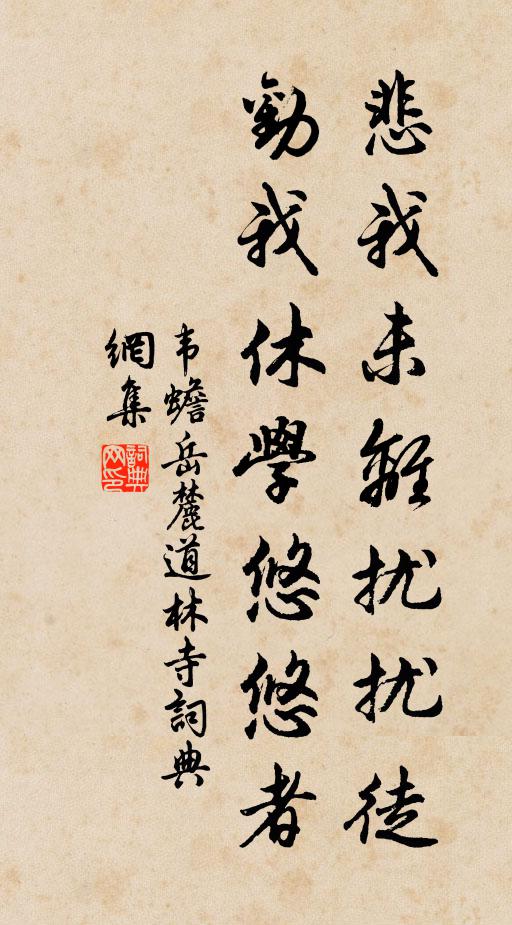 悲我未離扰扰徒
勸我休學悠悠者
韦蟾岳麓道林寺詞典
網集
詞典
网印